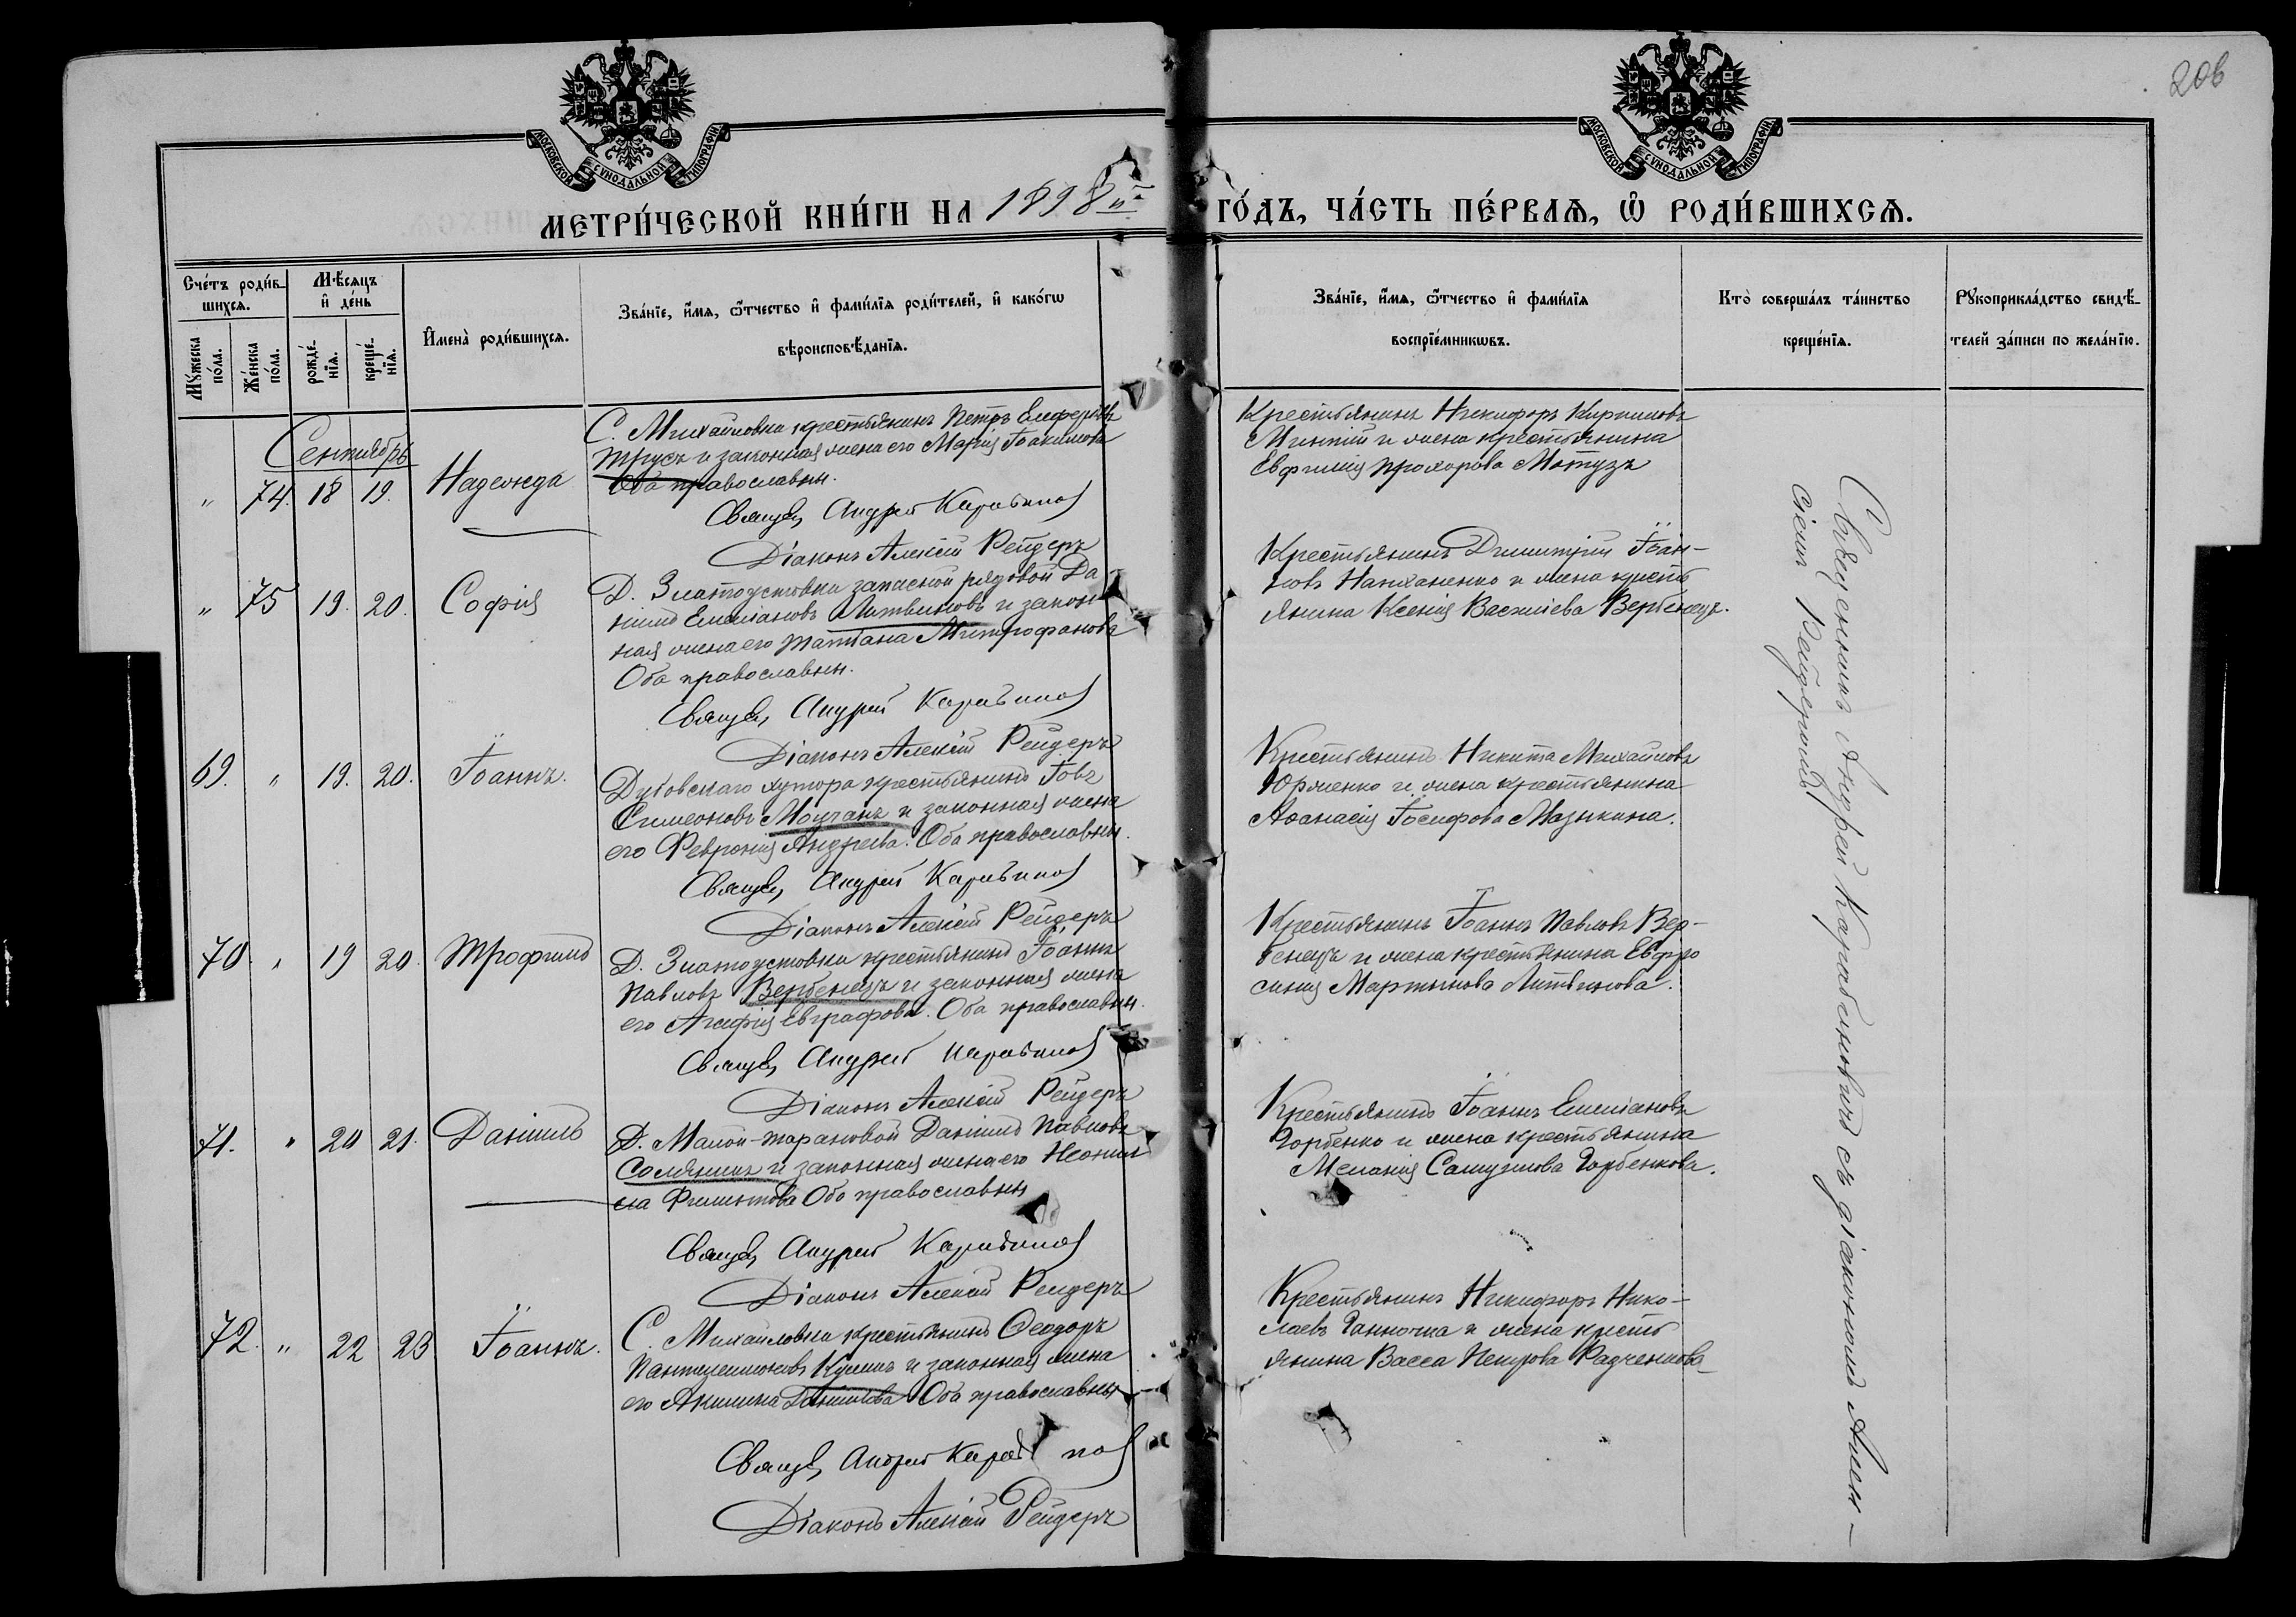 206
МОСКОВСКОЙ СѴНОДАЛЬНОЙ ТИПОГРАФІИ
МОСКОВСКОЙ СѴНОДАЛЬНОЙ ТИПОГРАФІИ
МЕТРИ́ЧЕСКОЙ КНИ́ГИ НА 1898й ГО́ДЪ, ЧА́СТЬ ПЕ́РВАѦ, Ѽ РОДИ́ВШИХСѦ.
Сче́тъ роди́в-
шихсѧ.
Мꙋ́жеска по́ла.
Же́нска по́ла.
Мѣ́сѧцъ
и҆ де́нь
рожде́-
нїѧ.
креще́-
нїѧ.
И҆мена̀ роди́вшихсѧ.
Зва́нїе, и҆́мѧ, ѻ҆́тчество и҆ фами́лїѧ роди́телей, и҆ како́гѡ
вѣроисповѣ́данїѧ.
Зва́нїе, и҆́мѧ, ѻ҆́тчество и҆ фами́лїѧ
воспрїе́мникѡвъ.
Кто̀ соверша́лъ та́инство
креще́нїѧ.
Рꙋкоприкла́дство свидѣ́-
телей за́писи по жела́нїю.
Сентябрь
" 74. 18 19. Надежда
С. Михайловки крестьянинъ Петръ Елеферіевъ
Трусъ и законная жена его Марія Іоакимова
Оба православны.
Священ. Андрей Карабинов
Діаконъ Алексій Рейдеръ
Крестьянинъ Никифоръ Кирилловъ
и жена крестьянина
Евфимія Прохорова Мотузъ
" 75 19. 20. Софія
Д. Златоустовки запасной рядовой Да
ніилъ Емеліановъ Литвиновъ и закон-
ная жена его Татіана Митрофанова
Оба православны.
Священ. Андрей Карабинов
Діаконъ Алексій Рейдеръ
Крестьянинъ Димитрій Іоан-
новъ и жена кресть
янина Ксенія Василіева Вербенецъ.
69. " 19. 20. Іоаннъ.
хутора крестьянинъ Іовъ
Симеоновъ Молчанъ и законная жена
его Февронія Андреева. Оба православны.
Священ. Андрей Карабинов
Діаконъ Алексій Рейдеръ
Крестьянинъ Никита Михайловъ
Юрченко и жена крестьянина
Аѳанасія Іосифова Мазыкина.
70. " 19 20. Трофимъ
Д. Златоустовки крестьянинъ Іоаннъ
Павловъ Вербенецъ и законная жена
его Агафія Евграфова. Оба православны.
Священ. Андрей Карабинов
Діаконъ Алексій Рейдеръ
Крестьянинъ Іоаннъ Павловъ Вер-
бенецъ и жена крестьянина Евфро
синія Мартынова Литвинова.
71. " 20 21. Даніилъ
Д. Малой-Тарановой Даніилъ Павловъ
Соляникъ и законная жена его Неонил
ла Филиппова Оба православны
Священ. Андрей Карабинов
Діаконъ Алексій Рейдеръ
Крестьянинъ Іоаннъ Емеліановъ
Горбенко и жена крестьянина
Меланія Самуилова Горбенкова.
72. " 22 23 Іоаннъ.
С. Михайловки крестьянинъ Ѳеодоръ
Пантелеимоновъ и законная жена
его Акилина Даніилова Оба православны
Священ. Андрей Караби нов
Діаконъ Алексій Рейдеръ
Крестьянинъ Никифоръ Нико-
лаевъ и жена кресть
янина Васса Петрова Радченкова
Священникъ Андрей Карабиновичъ съ діакономъ Алек-
сіемъ Рейдеромъ